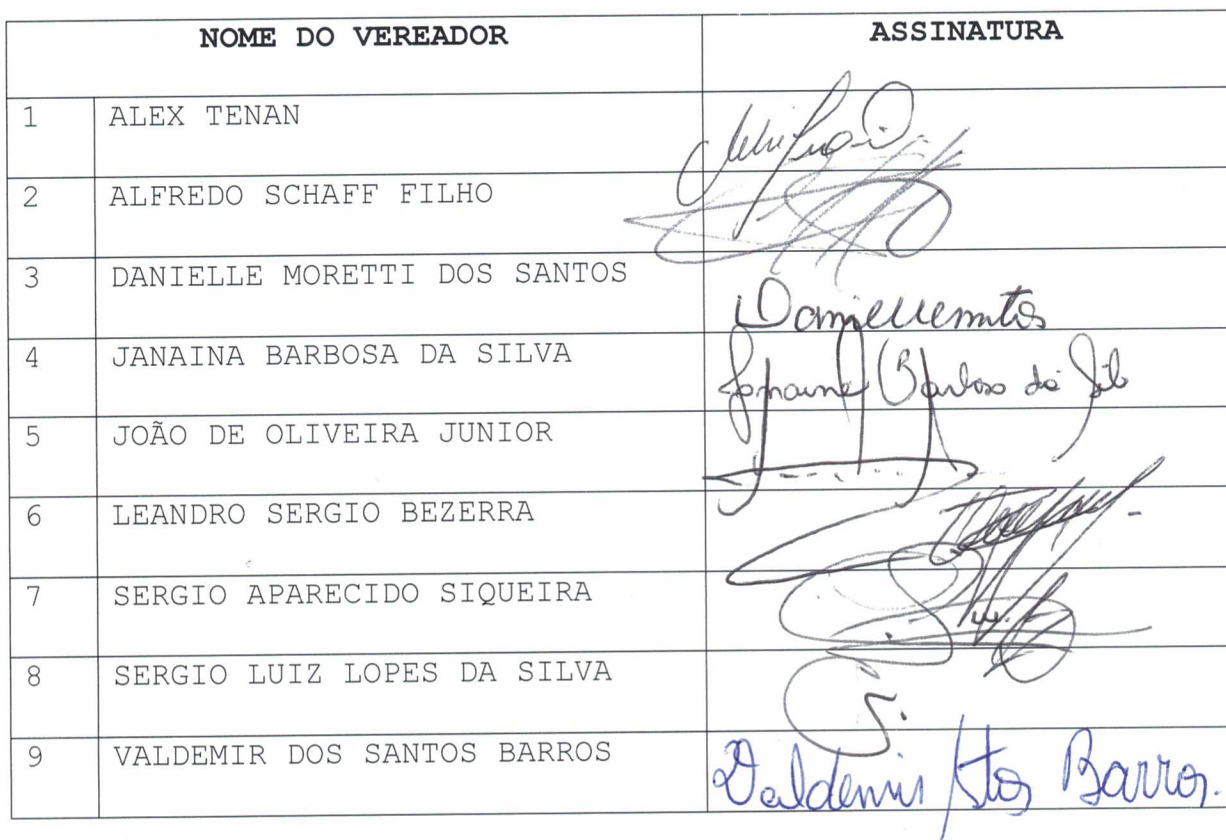 NOME DO VEREADOR ASSINATURA
1 ALEX TENAN
2 ALFREDO SCHAFF FILHO
3 DANIELLE MORETTI DOS SANTOS
4 JANAINA BARBOSA DA SILVA
Barbosa da
5 JOÃO DE OLIVEIRA JUNIOR
6 LEANDRO SERGIO BEZERRA
7 SERGIO APARECIDO SIQUEIRA
8 SERGIO LUIZ LOPES DA SILVA
9 VALDEMIR DOS SANTOS BARROS
Valdemir Stos Barros.